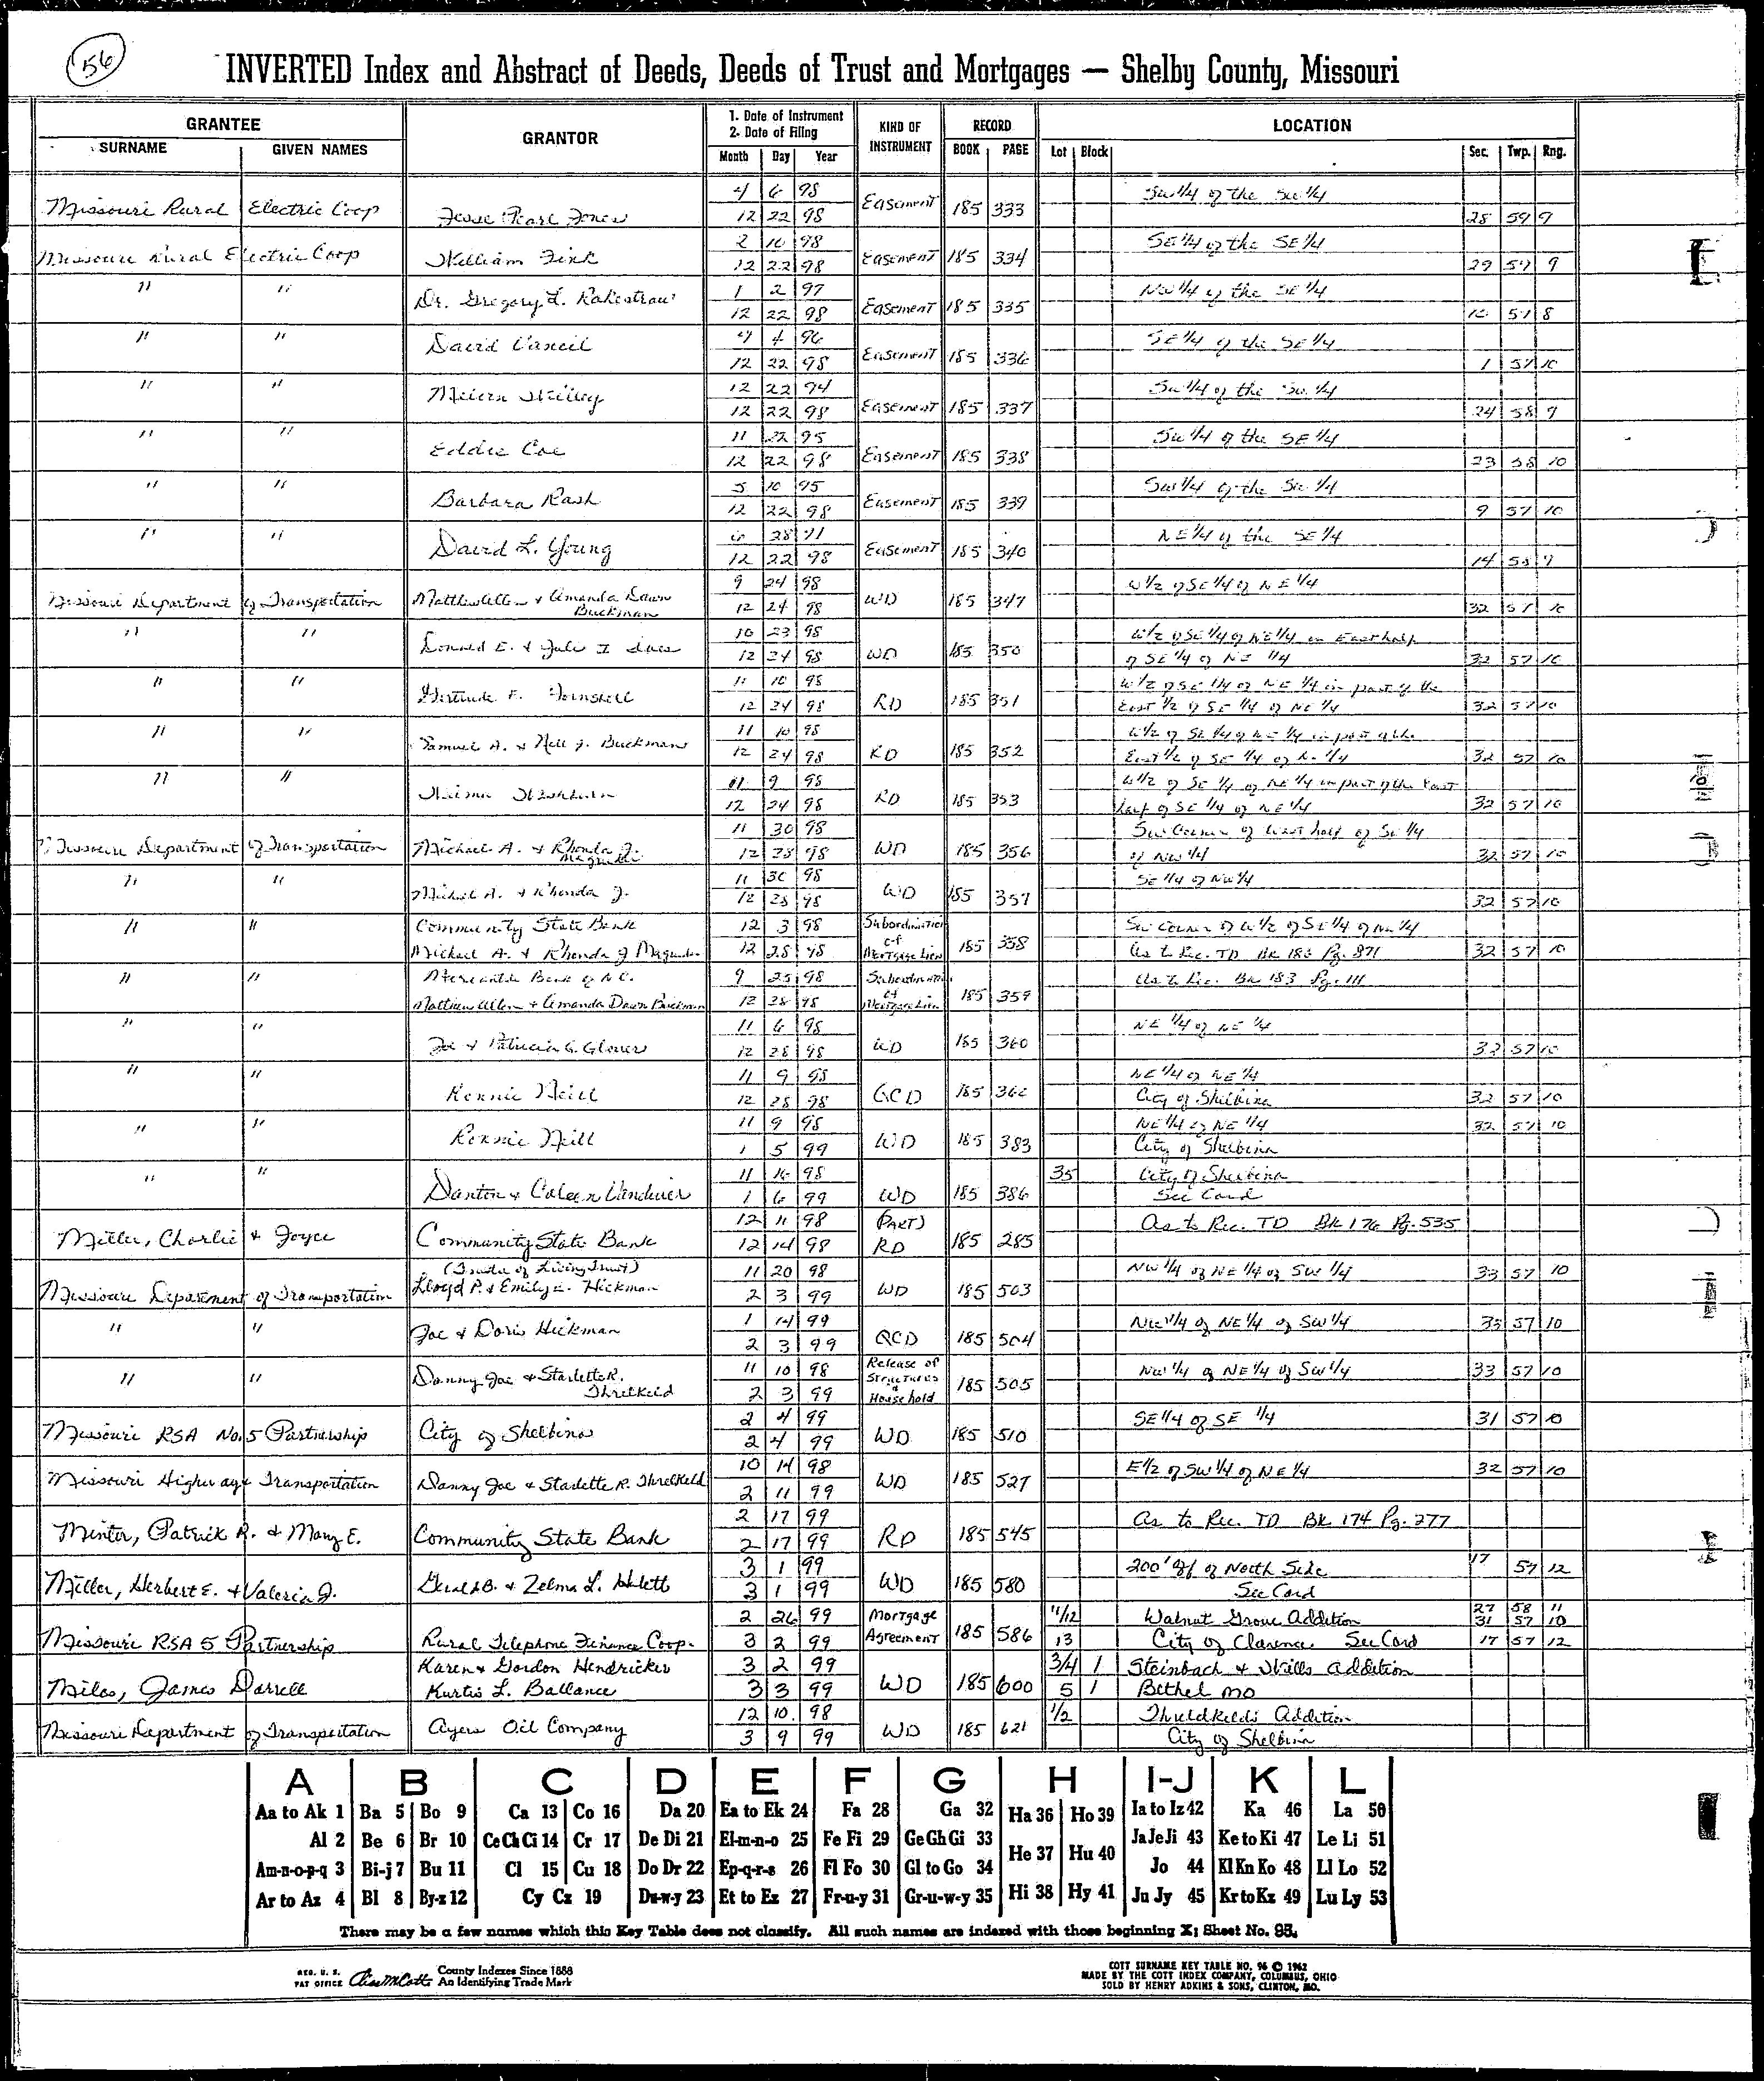 56
INVERTED Index and Abstract of Deeds, Deeds of Trust and Mortgages — Shelby County, Missouri
GRANTEE
SURNAME GIVEN NAMES
GRANTOR
1. Date of Instrument
2. Date of Filing
Month Day Year
KIND OF INSTRUMENT
RECORD
BOOK PAGE
LOCATION
Lot Block Sec. Twp. Rng.
4 6 98 SW 1/4 of the
Missouri Rural Electric Coop Pearl Jones 12 22 98 Easement 185 333 28 59 9
2 98 SE 1/4 of the SE 1/4
Missouri Rural Electric Coop William Fink 12 22 98 Easement 185 334 29 9
" " Dr. Gregory L. Rakestraw 1 2 97 NW 1/4 of the SE 1/4
12 22 98 Easement 185 335 57 8
" " David Vancil 4 96 SE 1/4 of the SE 1/4
12 22 98 Easement 185 336 1 57 10
" " 12 22 94 of the 1/4
12 22 98 Easement 185 337 24 58 9
" " Eddie Coe 11 22 95 1/4 of the SE 1/4
12 22 98 Easement 185 338 23 58 10
" " Barbara Rash 5 10 95 SW 1/4 of the 1/4
12 22 98 Easement 185 339 9 57 10
" " David L. Young 28 NE 1/4 of the SE 1/4
12 22 98 Easement 185 340 14 58 9
9 24 98 W 1/2 of SE 1/4 of NE 1/4
Missouri Department of Transportation Matthew Allen & Amanda Dawn Buckman 12 24 98 WD 185 347 32 57 10
" " Donald E. & Julie 10 23 98 W 1/2 of SE 1/4 of NE 1/4 in East half
12 24 98 WD 185 350 of SE 1/4 of NE 1/4 32 57 10
" " Gertrude F. 11 10 98 W 1/2 of SE 1/4 of NE 1/4 in part of the
12 24 98 RD 185 351 East 1/2 of SE 1/4 of NE 1/4 32 57 10
" " Samuel A. & Nell J. Buckman 11 10 98 W 1/2 of SE 1/4 of NE 1/4 in part of the
12 24 98 RD 185 352 East 1/2 of SE 1/4 of NE 1/4 32 57 10
" " 11 9 98 W 1/2 of SE 1/4 of NE 1/4 in part of the East
12 24 98 RD 185 353 half of SE 1/4 of NE 1/4 32 57 10
11 30 98 SW Corner of West half of SE 1/4
Missouri Department of Transportation Michael A. & Rhonda J. Magruder 12 28 98 WD 185 356 of NW 1/4 32 57 10
" " Michael A. & Rhonda J. 11 30 98 SE 1/4 of NW 1/4
12 28 98 WD 185 357 32 57 10
" " Community State Bank 12 3 98 Subordination SW Corner of W 1/2 of SE 1/4 of NW 1/4
Michael A. & Rhonda J Magruder 12 28 98 of Mortgage Lien 185 358 As to Rec. TD Bk 183 Pg. 871 32 57 10
" " Mercantile Bank of N.C. 9 25 98 Subordination As to Rec. Bk 183 Pg. 111
Matthew Allen & Amanda Dawn Buckman 12 28 98 of Mortgage Lien 185 359
" " Joe & Patricia G. Glover 11 6 98 NE 1/4 of NE 1/4
12 28 98 WD 185 360 32 57 10
" " Ronnie Neill 11 9 98 NE 1/4 of NE 1/4
12 28 98 QCD 185 362 City of Shelbina 32 57 10
" " Ronnie Neill 11 9 98 NE 1/4 of NE 1/4 32 57 10
1 5 99 WD 185 383 City of Shelbina
" " Danton & Coleen Vandiver 11 16 98 35 City of Shelbina
1 6 99 WD 185 386 See Card
Miller, Charlie & Joyce Community State Bank 12 11 98 (PART) As to Rec. TD Bk 176 Pg. 535
12 14 98 RD 185 285
(Trustee of Living Trust) 11 20 98 NW 1/4 of NE 1/4 of SW 1/4 33 57 10
Missouri Department of Transportation Lloyd P. & Emily E. Hickman 2 3 99 WD 185 503
" " Joe & Doris Hickman 1 14 99 NW 1/4 of NE 1/4 of SW 1/4 33 57 10
2 3 99 QCD 185 504
" " Danny Joe & Starlette R. Threlkeld 11 10 98 Release of Structures & Household NW 1/4 of NE 1/4 of SW 1/4 33 57 10
2 3 99 185 505
2 4 99 SE 1/4 of SE 1/4 31 57 10
Missouri RSA No. 5 Partnership City of Shelbina 2 4 99 WD 185 510
10 14 98 E 1/2 of SW 1/4 of NE 1/4 32 57 10
Missouri Highway & Transportation Danny Joe & Starlette R. Threlkeld 2 11 99 WD 185 527
2 17 99 As to Rec. TD Bk 174 Pg. 277
Minter, Patrick R. & Mary E. Community State Bank 2 17 99 RD 185 545
3 1 99 200' off of North Side 17 57 12
Miller, Herbert E. & Valeria J. Gerald B. & Zelma L. Hulett 3 1 99 WD 185 580 See Card
2 26 99 Mortgage 11/12 Walnut Grove Addition 27 58 11
31 57 10
Missouri RSA 5 Partnership Rural Telephone Finance Coop. 3 2 99 Agreement 185 586 13 City of Clarence See Card 17 57 12
Karen & Gordon Hendricker 3 2 99 3/4 1 Steinbach & Wills Addition
Miles, James Darrell Kurtis L. Ballance 3 3 99 WD 185 600 5 1 Bethel Mo
12 10. 98 1/2 Threldkelds Addition
Missouri Department of Transportation Ayers Oil Company 3 9 99 WD 185 621 City of Shelbina
A B C D E F G H I-J K L
Aa to Ak 1 Ba 5 Bo 9 Ca 13 Co 16 Da 20 Ea to Ek 24 Fa 28 Ga 32 Ha 36 Ho 39 Ia to Iz 42 Ka 46 La 50
Al 2 Be 6 Br 10 Ce Ch Ci 14 Cr 17 De Di 21 El-m-n-o 25 Fe Fi 29 Ge Gh Gi 33 He 37 Hu 40 Ja Je Ji 43 Ke to Ki 47 Le Li 51
Am-n-o-p-q 3 Bi-j 7 Bu 11 Cl 15 Cu 18 Do Dr 22 Ep-q-r-s 26 Fl Fo 30 Gl to Go 34 Jo 44 Kl Kn Ko 48 Ll Lo 52
Ar to Az 4 Bl 8 By-z 12 Cy Cz 19 Du-w-y 23 Et to Ez 27 Fr-u-y 31 Gr-u-w-y 35 Hi 38 Hy 41 Ju Jy 45 Kr to Kz 49 Lu Ly 53
There may be a few names which this Key Table does not classify. All such names are indexed with those beginning X; Sheet No. 95.
REG. U. S. PAT OFFICE County Indexes Since 1888
An Identifying Trade Mark
COTT SURNAME KEY TABLE NO. 96 © 1962
MADE BY THE COTT INDEX COMPANY, COLUMBUS, OHIO
SOLD BY HENRY ADKINS & SONS, CLINTON, MO.